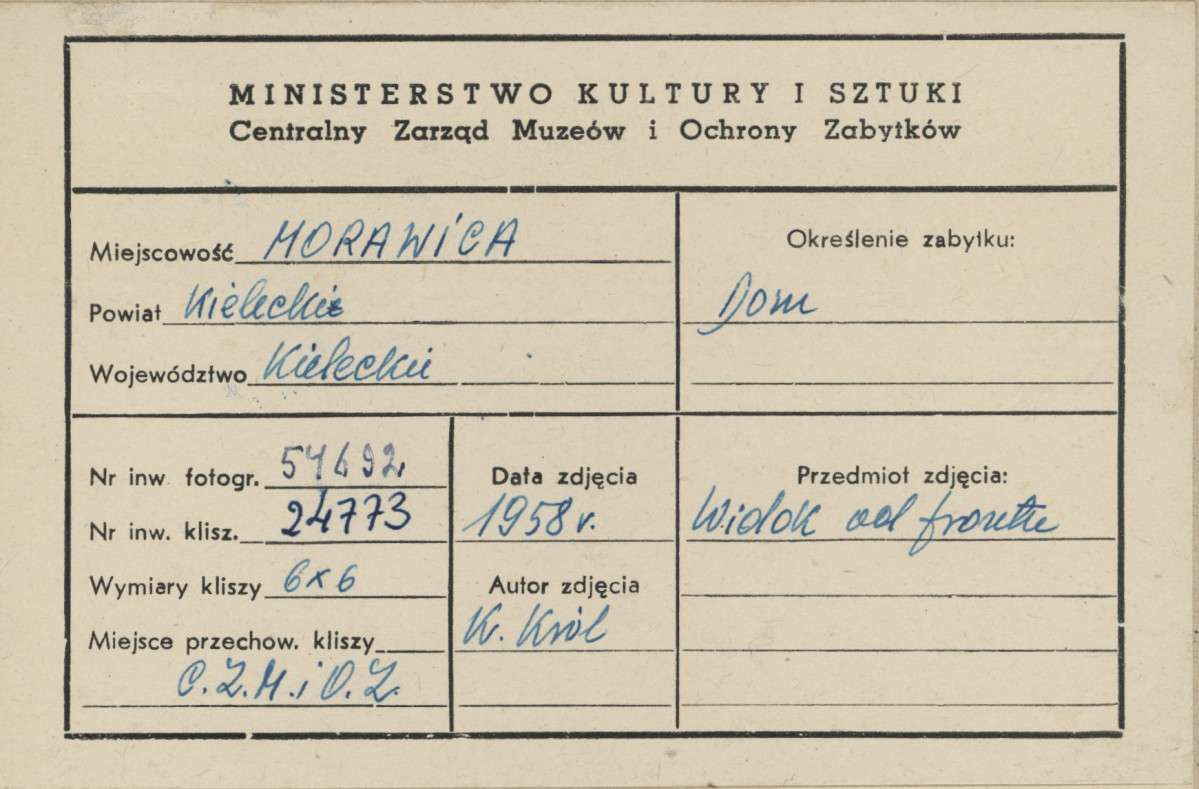 MINISTERSTWO KULTURY I SZTUKI
Centralny Zarząd Muzeów i Ochrony Zabytków
Miejscowość MORAWICA
Powiat Kielecki
Województwo Kieleckie
Określenie zabytku:
Dom
Nr inw fotogr. 54692
Nr inw. klisz. 24773
Wymiary kliszy 6x6
Miejsce przechow. kliszy
C.Z.M. i O.Z.
Data zdjęcia
1958 r.
Autor zdjęcia
K. Król
Przedmiot zdjęcia:
Widok od frontu